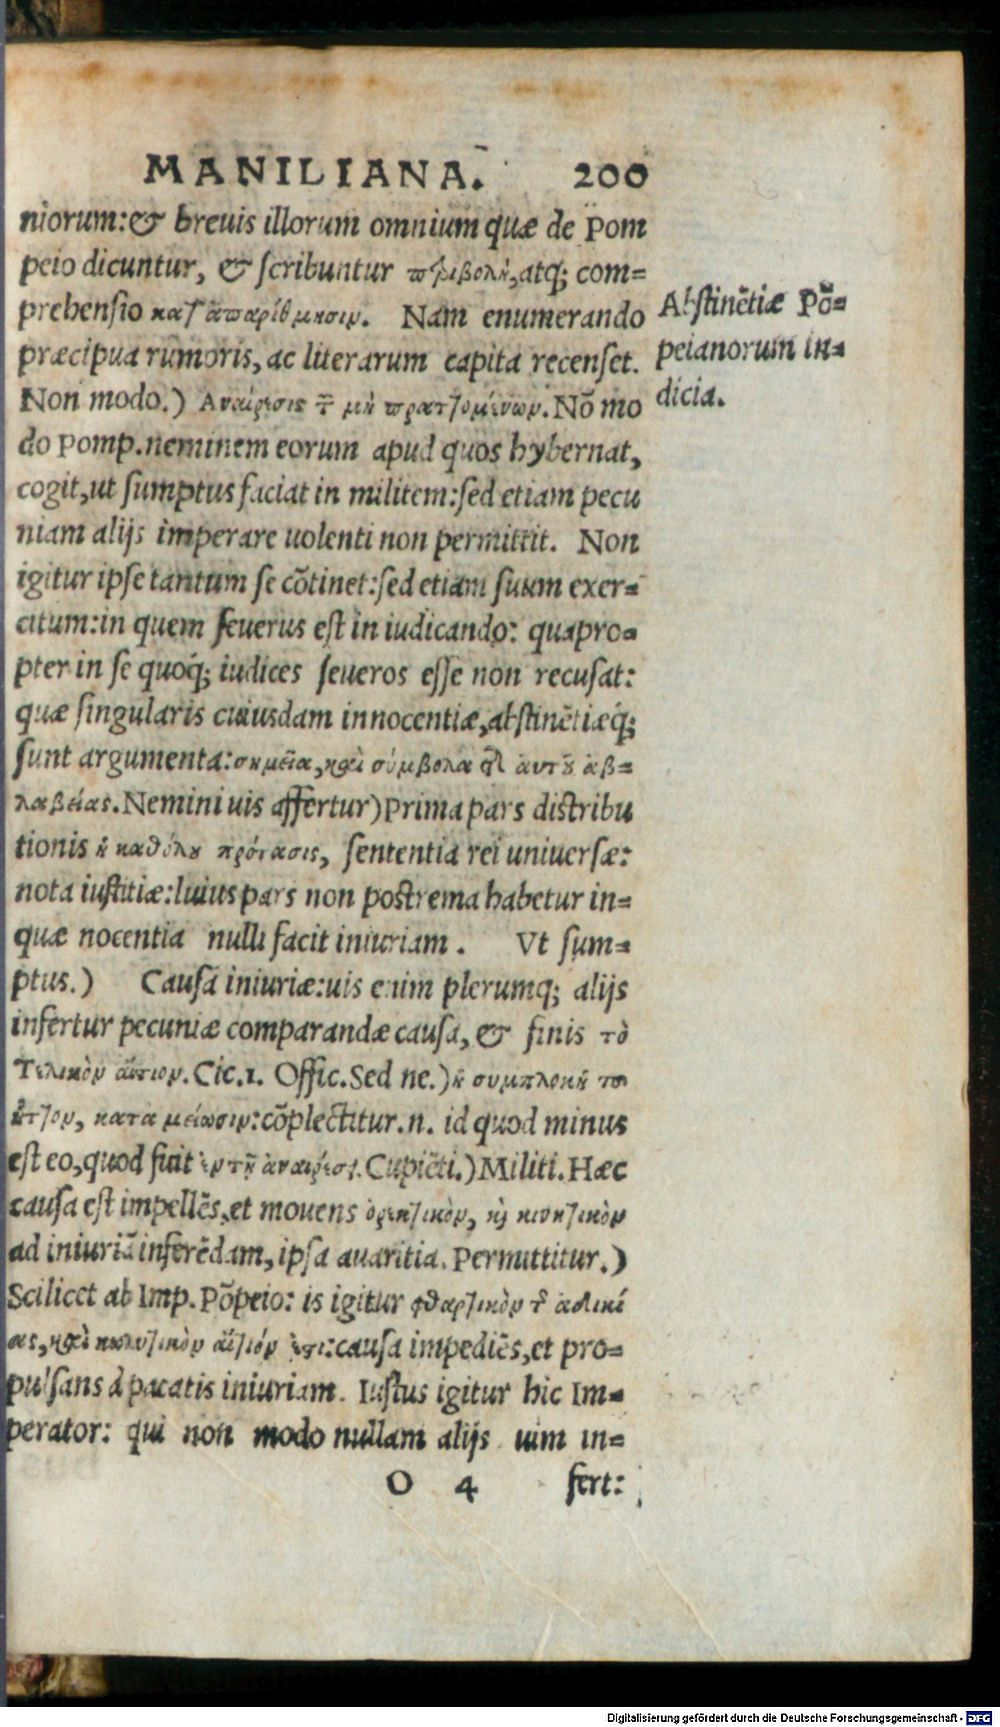 MANILIANA. 200
niorum:& breuis illorum omnium quæ de Pom
peio dicuntur, & scribuntur atq; com=
prehensio κατ' ἀπαρίθμησιν. Nam enumerando
præcipua rumoris, ac literarum capita recenset.
Non modo.) Αναίρεσις τ̃ μὴ πραττομένων. Nō mo
do Pomp. neminem eorum apud quos hybernat,
cogit, ut sumptus faciat in militem: sed etiam pecu
niam alijs imperare uolenti non permittit. Non
igitur ipse tantum se cōtinet: sed etiam suum exer=
citum: in quem seuerus est in iudicando: quapro=
pter in se quoq; iudices seueros esse non recusat:
quæ singularis cuiusdam innocentiæ, abstinētiæq;
sunt argumenta: σημεῖα, καὶ σύμβολα αὐτοῦ ἀβ=
λαβείας. Nemini uis affertur) Prima pars distribu
tionis ἡ καθόλου πρότασις, sententia rei uniuersæ:
nota iustitiæ: huius pars non postrema habetur in=
quæ nocentia nulli facit iniuriam. Vt sum=
ptus.) Causa iniuriæ: uis enim plerumq; alijs
infertur pecuniæ comparandæ causa, & finis τὸ
τελικὸν αἴτιον. Cic.1. Offic. Sed ne.) ἡ συμπλοκὴ
ἧττον, κατὰ μείωσιν: cōplectitur.n. id quod minus
est eo, quod fuit ἐν τῇ ἀναιρέσει. Cupiēti.) Militi. Hæc
causa est impellēs, et mouens ὁρμητικὸν, κ̀ κινητικὸν
ad iniuriā inferēdam, ipsa auaritia. Permittitur.)
Scilicet ab Imp. Pōpeio: is igitur φθαρτικὸν τ̃ ἀδικί
ας, καὶ κωλυτικὸν αἴτιόν ἐστι: causa impediēs, et pro=
pulsans à pacatis iniuriam. Iustus igitur hic Im=
perator: qui non modo nullam alijs uim in=
O 4 fert:
Abstinētiæ Pō=
peianorum in=
dicia.
Digitalisierung gefördert durch die Deutsche Forschungsgemeinschaft - DFG